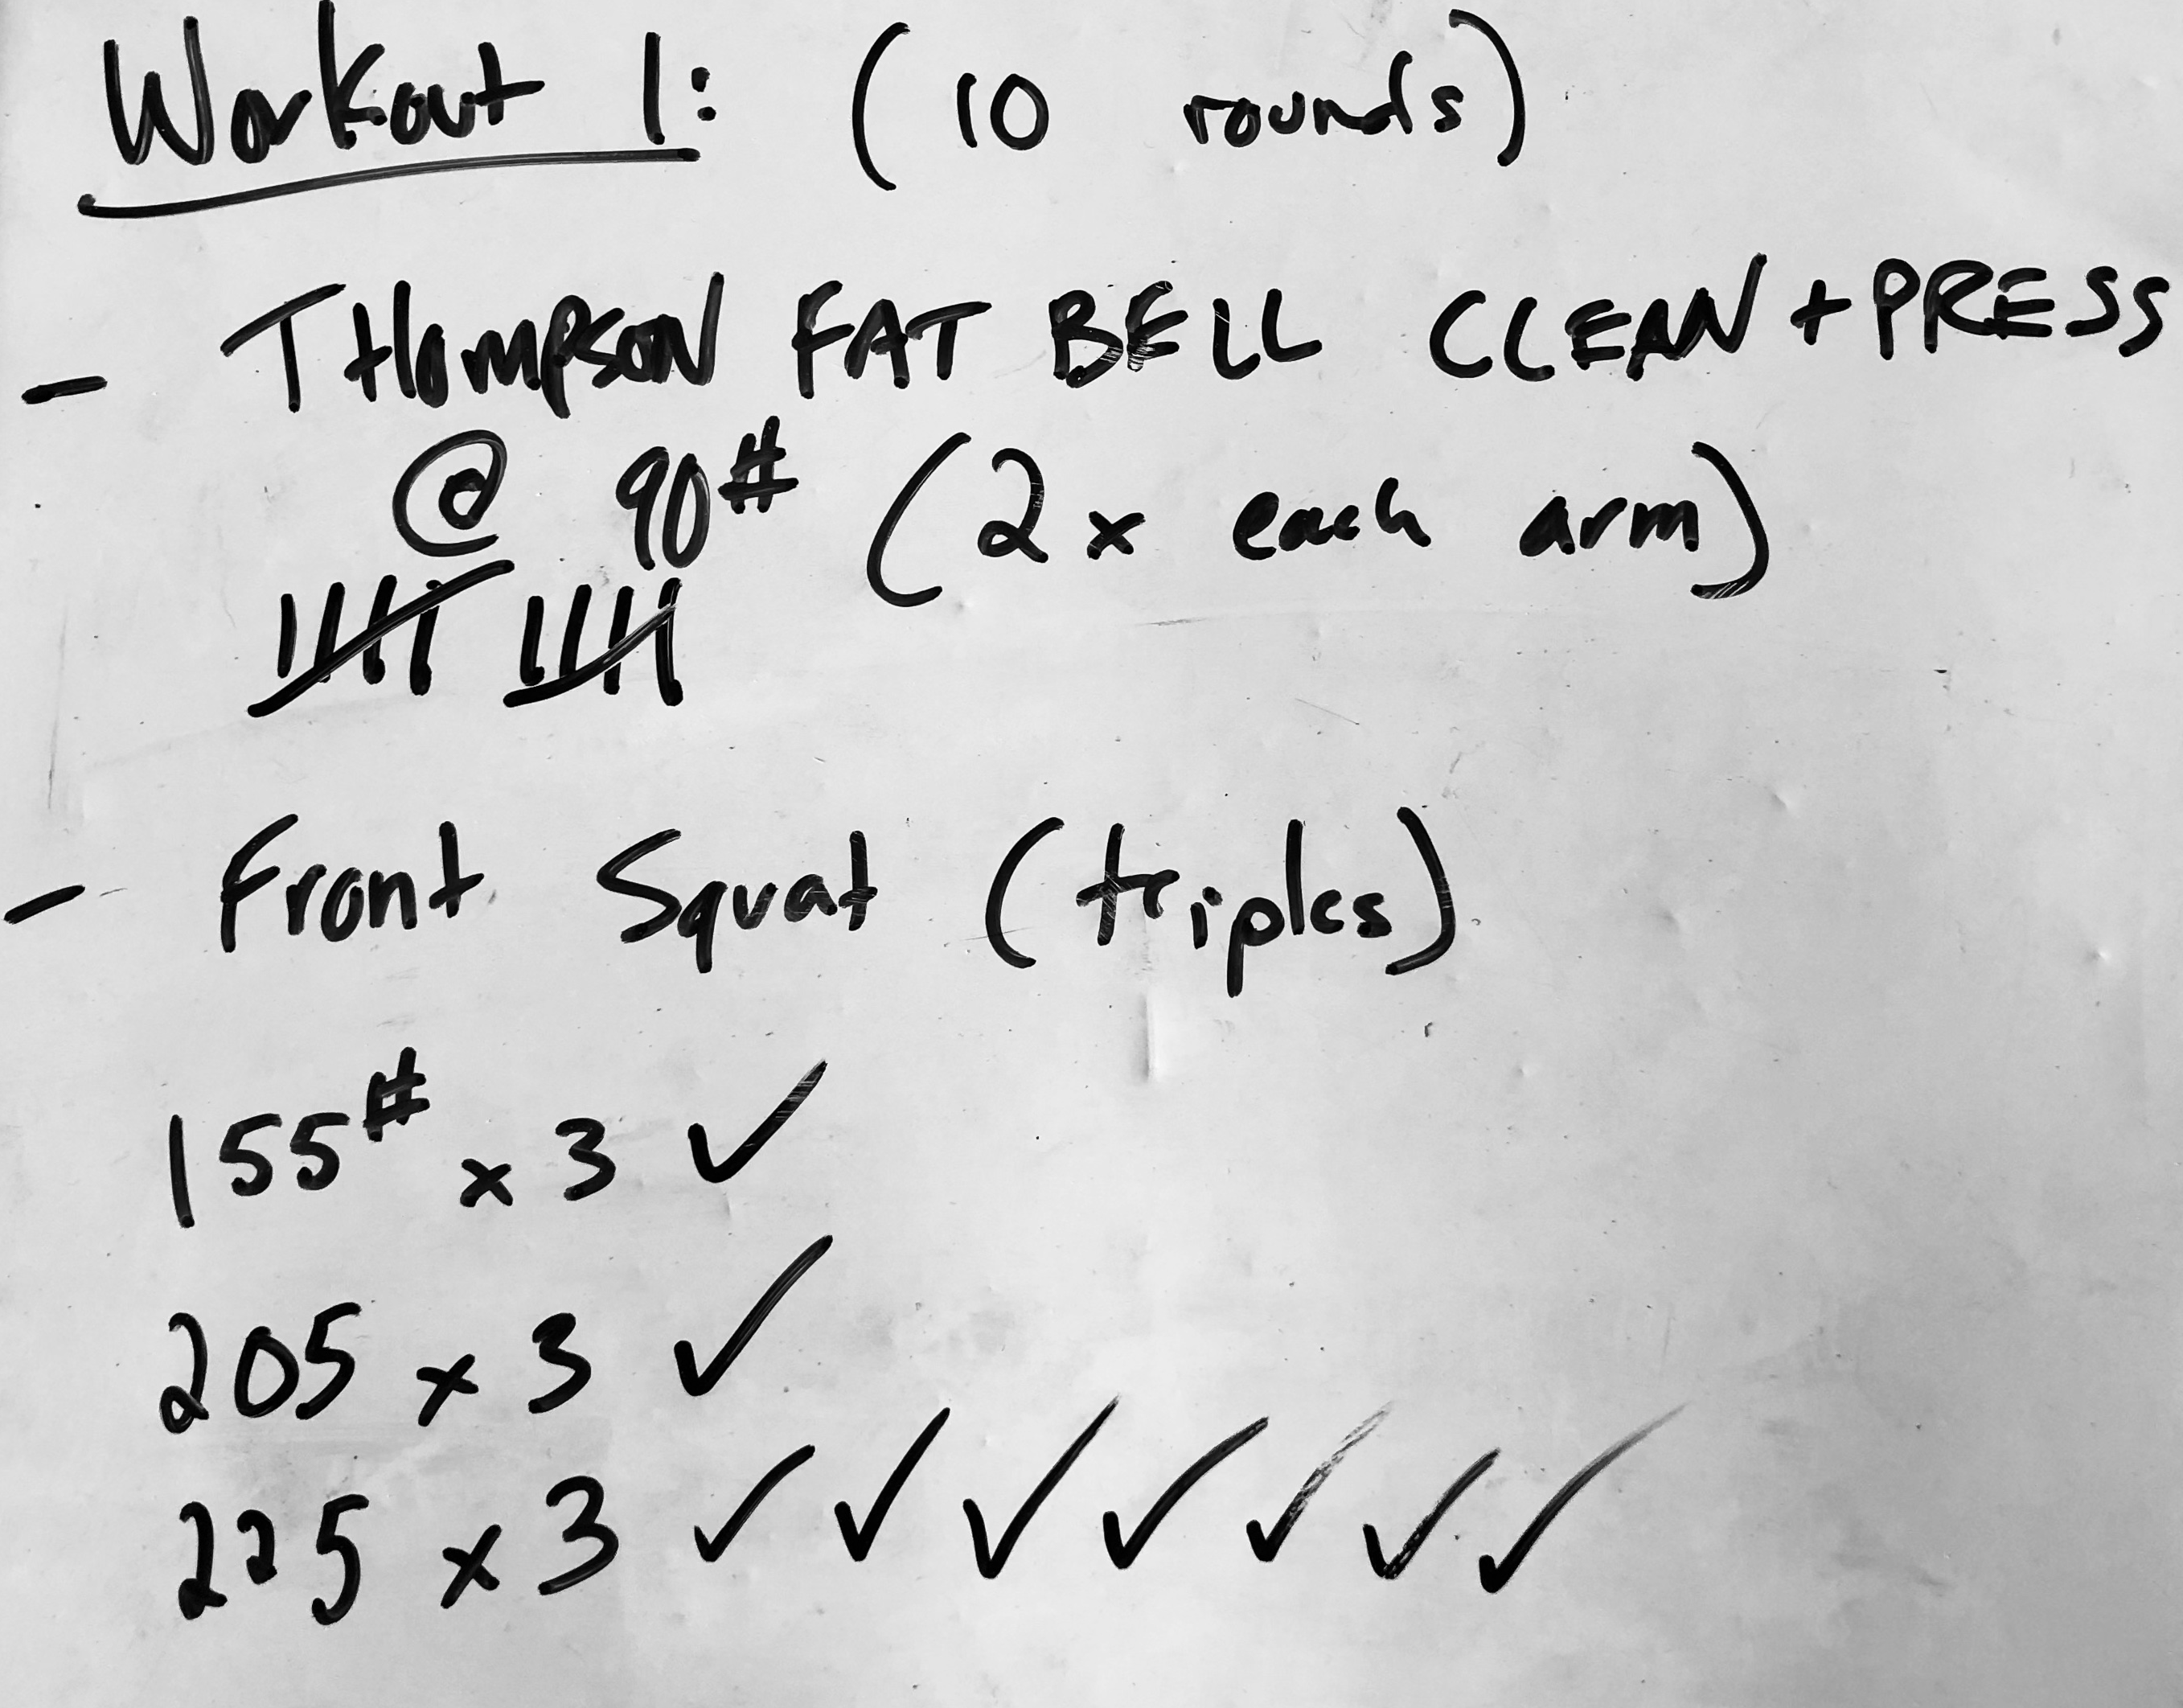 Workout 1: (10 rounds)
- THOMPSON FAT BELL CLEAN + PRESS
@ 90# (2x each arm)
卌 卌
- Front Squat (triples)
155# x 3 ✓
205 x 3 ✓
225 x 3 ✓ ✓ ✓ ✓ ✓ ✓ ✓